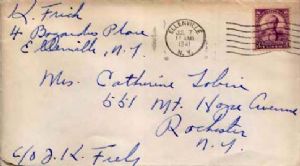 K. Frich
4 Bogardus Place
Ellenville, N.Y.
ELLENVILLE
JUL 7
1941
N.Y.
Mrs. Catherine Tobin
551 Mt. Hope Avenue
Rochester
N.Y.
C/O J. K.